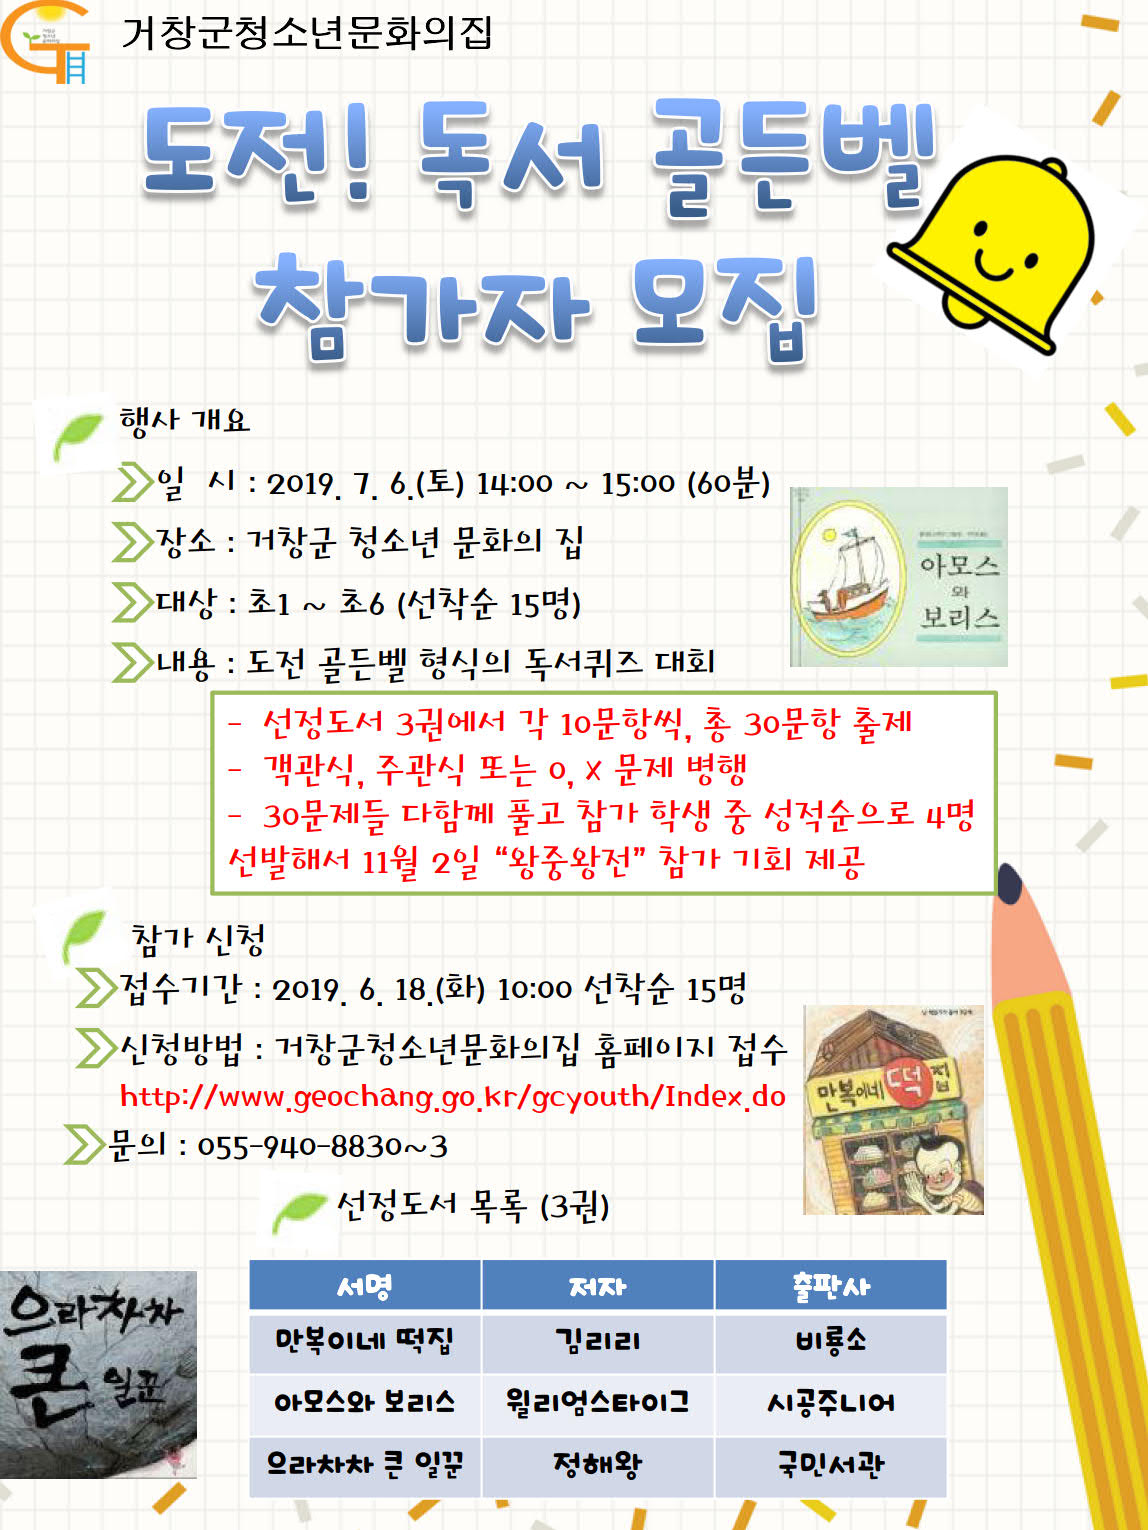 거창군청소년문화의집
도전! 독서 골든벨
참가자 모집
행사 개요
일 시 : 2019. 7. 6.(토) 14:00 ~ 15:00 (60분)
장소 : 거창군 청소년 문화의 집
대상 : 초1 ~ 초6 (선착순 15명)
내용 : 도전 골든벨 형식의 독서퀴즈 대회
아모스
와
보리스
- 선정도서 3권에서 각 10문항씩, 총 30문항 출제
- 객관식, 주관식 또는 o, X 문제 병행
- 30문제들 다함께 풀고 참가 학생 중 성적순으로 4명
선발해서 11월 2일 “왕중왕전” 참가 기회 제공
참가 신청
접수기간 : 2019. 6. 18.(화) 10:00 선착순 15명
신청방법 : 거창군청소년문화의집 홈페이지 접수
http://www.geochang.go.kr/gcyouth/Index.do
문의 : 055-940-8830~3
만복이네 떡집
선정도서 목록 (3권)
서명 저자 출판사
만복이네 떡집 김리리 비룡소
아모스와 보리스 윌리엄스타이그 시공주니어
으라차차 큰 일꾼 정해왕 국민서관
으라차차
큰 일꾼